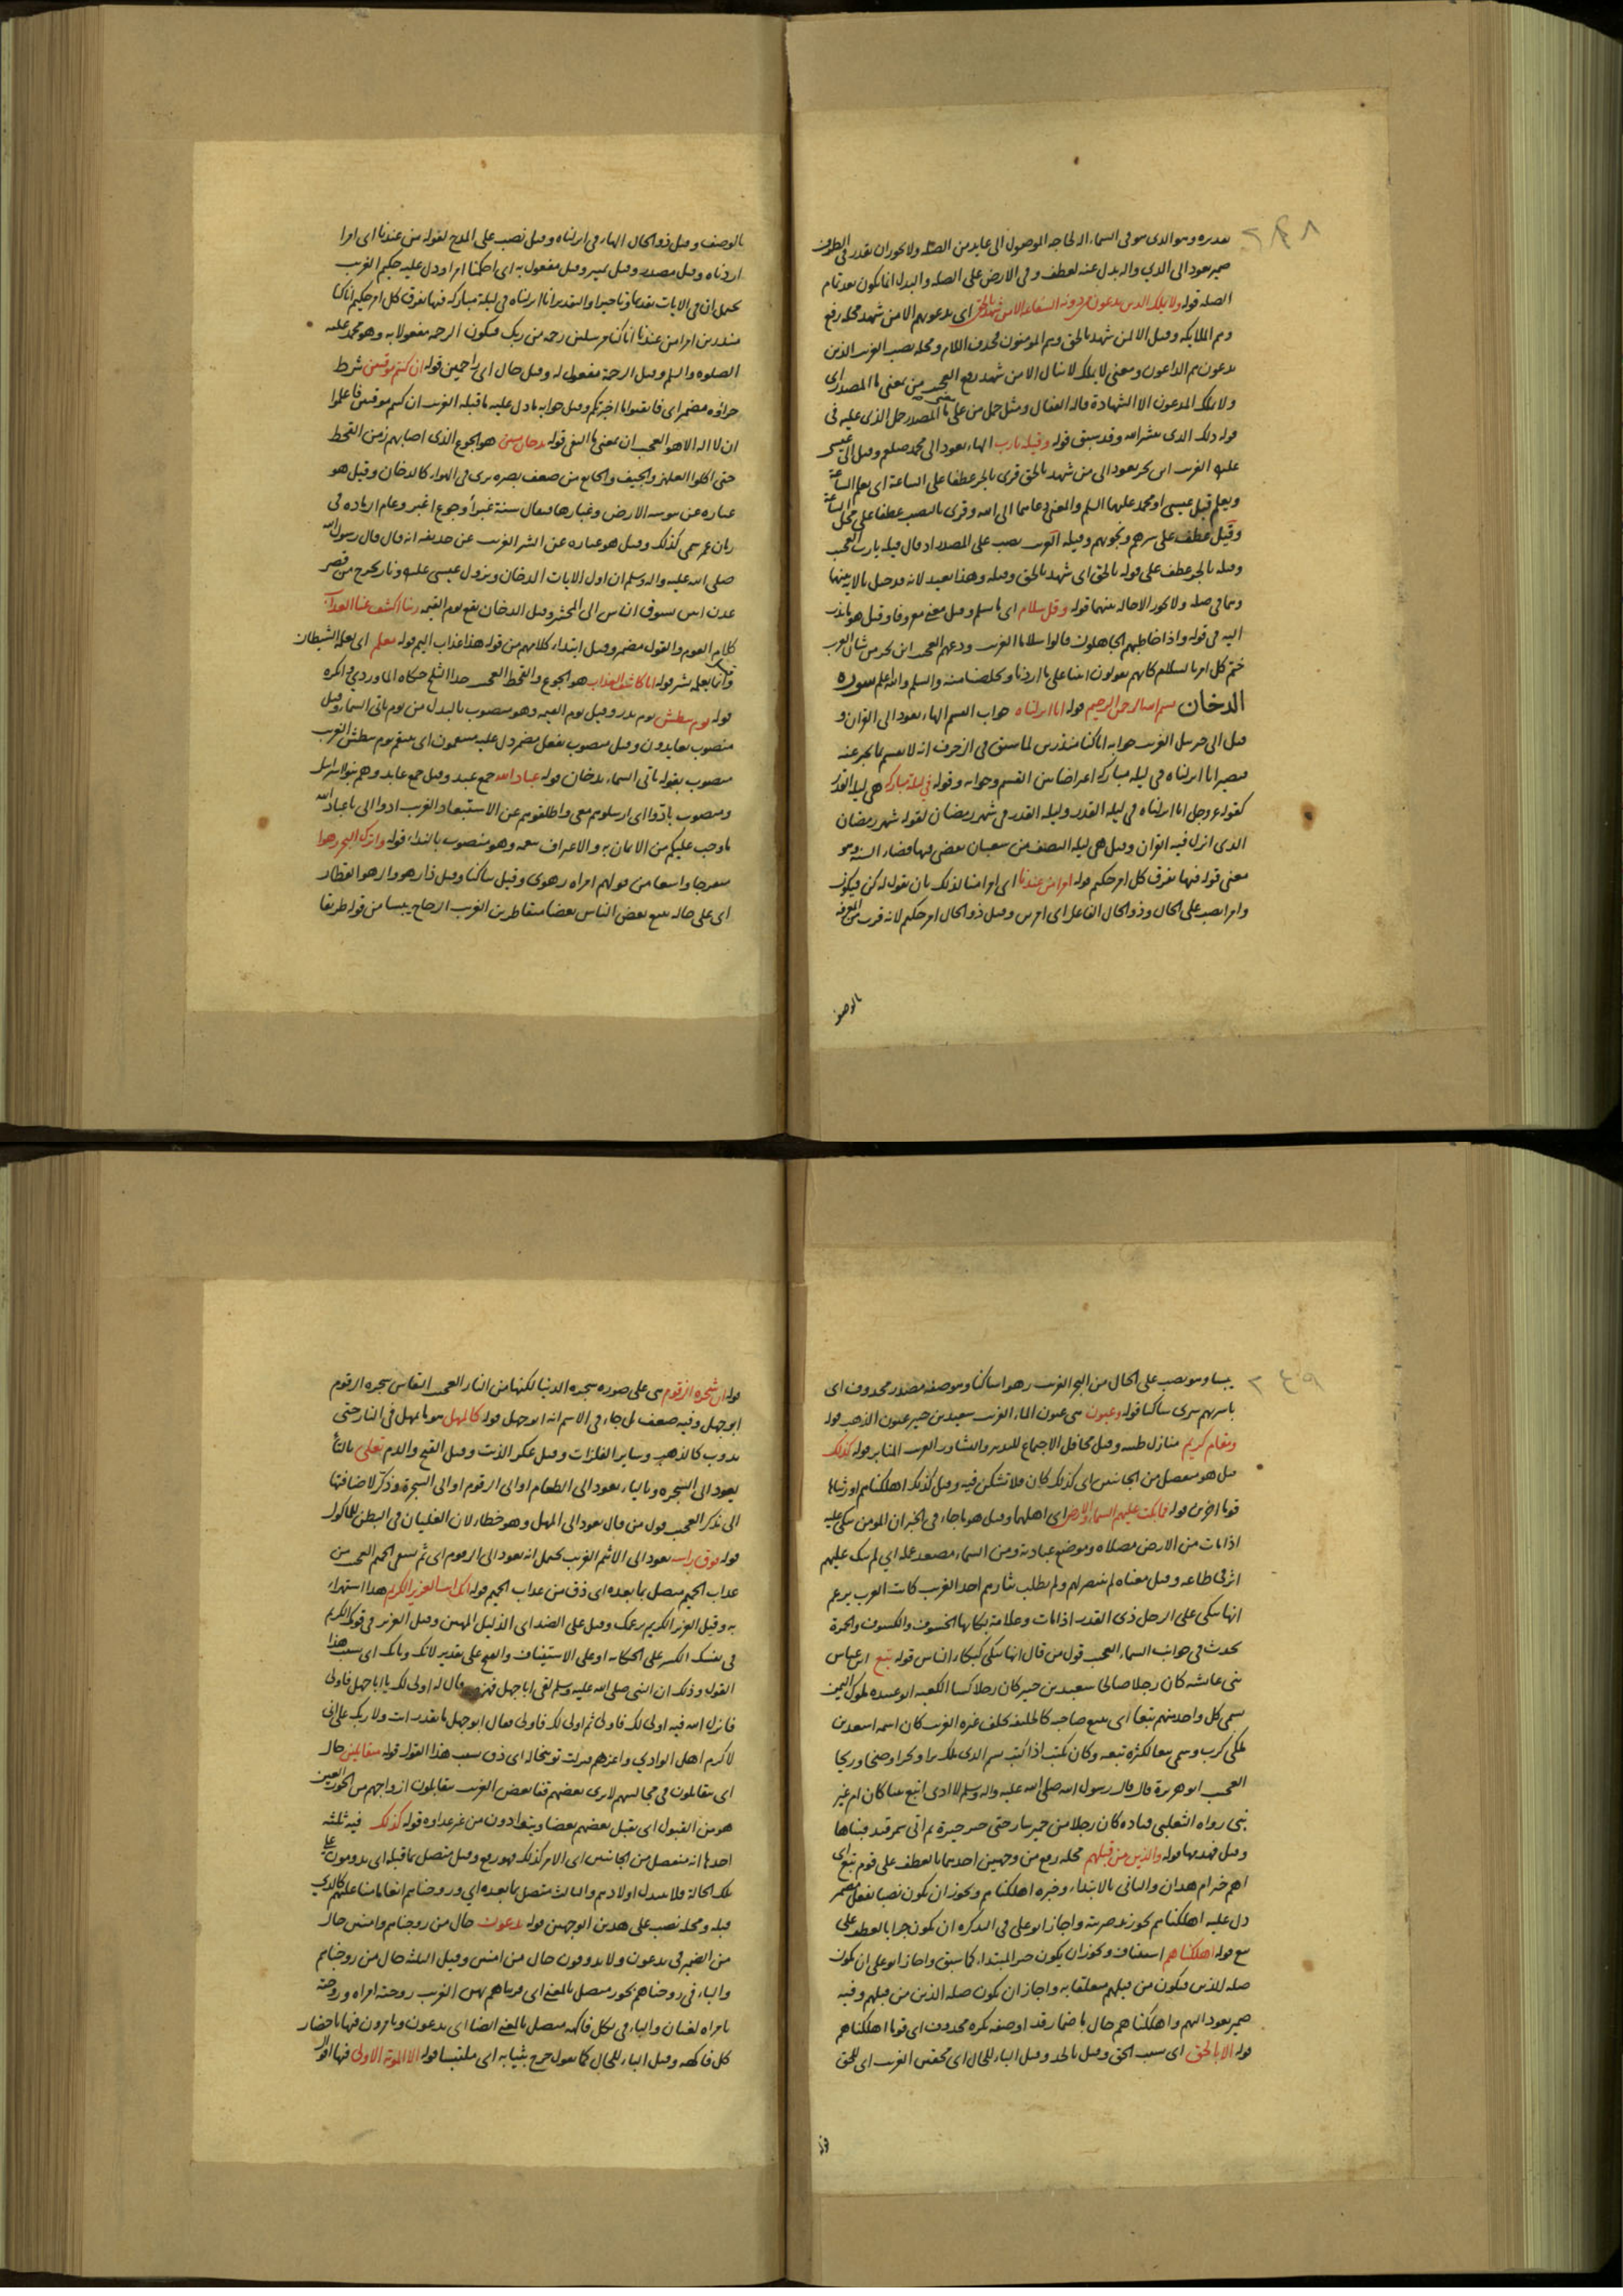 تقديره وهو الذي هو في السماء اله لحاجه الموصول الى عايد من الصله ولا يجوز ان يقدر في الظرف
ضمير يعود الى الذي واله بدل عنه لعطف وفي الارض على الصله والبدل انما يكون بعد تمام
الصله قوله ولا يملك الذين يدعون من دونه الشفاعه الا من شهد بالحق اي يدعونهم الا من شهد محله رفع
وهم الملايكه وقيل الا لمن شهد بالحق وهم المومنون فحذف اللام ومحله نصب الغريب الذين
يدعون هم الداعون ومعنى لا يملك لا ينال الا من شهد رفع العجب من بمعنى ما المصدر اي
ولا يملك المدعون الا الشهادة قاله القفال ومثل حمل من على معنى ما المصدر حمل الذي عليه في
قوله ذلك الذي يبشر الله وقد سبق قوله وقيله يارب الهاء يعود الى محمد صلعم وقيل الى عيسى
عليه الغريب ابن بحر يعود الى من شهد بالحق قرئ بالجر عطفا على الساعة اي يعلم الساعة
ويعلم قيل عيسى او محمد عليهما السلم والمعنى دعاءهما الى الله وقرئ بالنصب عطفا على محل الساعة
وقيل عطف على سرهم ونجويهم وقيله الغريب نصب على المصدر اذ قال قيله يارب العجب
وقيله بالجر عطف على قوله بالحق اي شهد بالحق وقيله وهذا بعيد لانه قد حيل بالاية بينهما
وهما في صله ولا يجوز الاحاله بينهما قوله وقل سلام اي ما سلم وقيل معنى معروفا وقيل هو ما ندب
اليه في قوله واذا خاطبهم الجاهلون قالوا سلاما الغريب ودعهم العجب ابن بحر من شان العرب
ختم كل امر بالسلام كانهم يقولون اتينا على ما اردنا وتخلصنا منه والسلم والله اعلم سورة
الدخان بسم الله الرحمن الرحيم قوله انا انزلناه جواب القسم الهاء يعود الى القران و
قيل الى جبريل الغريب جوابه انا كنا منذرين لما سبق في الزخرف انه لا يقسم بما يخبر عنه
فيصير انا انزلناه في ليلة مباركه اعتراضا بين القسم وجوابه وقوله في ليلة مباركه هي ليلة القدر
كقوله عز وجل انا انزلناه في ليلة القدر وليلة القدر في شهر رمضان لقوله شهر رمضان
الذي انزل فيه القران وقيل هي ليلة النصف من شعبان يقضى فيها قضاء السنة وهو
معنى قوله فيها يفرق كل امر حكيم قوله امرا من عندنا اي امرا منا لذلك بان نقول له كن فيكون
وامرا نصب على الحال وذو الحال الفاعل اي امرين وقيل ذو الحال امر حكيم لانه قرب من المعرفة
بالوصف
بالوصف وقيل ذو الحال الهاء في انزلناه وقيل نصب على المدح لقوله من عندنا اي امرا
اردناه وقيل مصدر وقيل تمييز وقيل مفعول به اي احكمنا امرا ودل عليه حكيم الغريب
يحتمل ان في الايات تقديما وتاخيرا والتقدير انا انزلناه في ليلة مباركه فيها يفرق كل امر حكيم انا كنا
منذرين امرا من عندنا انا كنا مرسلين رحمه من ربك فيكون الرحمه مفعولا به وهو محمد عليه
الصلوه والسلم وقيل الرحمة مفعول له وقيل حال اي راحمين قوله ان كنتم موقنين شرط
جزاؤه مضمر اي فايقنوا بما اخبرتكم وقيل جوابه ما دل عليه ما قبله الغريب ان كنتم موقنين فاعلموا
ان لا اله الا هو العجب ان بمعنى ما النفي قوله بدخان مبين هو الجوع الذي اصابهم زمن القحط
حتى اكلوا العلهز والجيف والجايع من ضعف بصره يرى في الهواء كالدخان وقيل هو
عباره عن يبوسه الارض وغبارها فيقال سنة غبراء وجوع اغبر وعام الرماده في
زمان عمر سمي كذلك وقيل هو عباره عن الشر الغريب عن حذيفه انه قال قال رسول الله
صلى الله عليه واله وسلم ان اول الايات الدخان ونزول عيسى عليه ونار تخرج من قصر
عدن ابين تسوق الناس الى المحشر وقيل الدخان يقع يوم القيمه ربنا اكشف عنا العذاب
كلام القوم والقول مضمر وقيل ابتداء كلامهم من قوله هذا عذاب اليم قوله معلم اي يعلمه الشيطان
وانما يعلمه بشر قوله انا كاشفوا العذاب هو الجوع والقحط العجب هذا الثلج حكاه الماوردي وانكره
قوله يوم نبطش يوم بدر وقيل يوم القيمه وهو منصوب بالبدل من يوم تاتي السماء وقيل
منصوب بعايدون وقيل منصوب بفعل مضمر دل عليه منتقمون اي ننتقم يوم نبطش الغريب
منصوب بقوله تاتي السماء بدخان قوله عباد الله جمع عبد وقيل جمع عابد وهم بنو اسرايل
ومنصوب بادوا اي ارسلوهم معي واطلقوهم عن الاستعباد الغريب ادوا الي يا عباد الله
ما وجب عليكم من الايمان به والاعتراف بنعمه وهو منصوب بالنداء قوله واترك البحر رهوا
منفرجا واسعا من قولهم امراه رهوى وقيل ساكنا وقيل ذا رهو والرهو القطار
اي على حاله يتبع بعض الناس بعضا متقاطرين الغريب الزجاج يبسا من قوله طريقا
يبسا وهو نصب على الحال من البحر الغريب رهوا ساكنا وهو صفه مصدر محذوف اي
باسرهم سرى ساكنا قوله وعيون هي عيون الماء الغريب سعيد بن جبير عيون الذهب قوله
ومقام كريم منازل طيبه وقيل محافل الاجتماع للتدبير والتشاور الغريب المنابر قوله كذلك
قيل هو منفصل من الجانبين اي كذلك كان فلا تشكن فيه وقيل كذلك اهلكناهم واورثناها
قوما اخرين قوله فما بكت عليهم السماء والارض اي اهلهما وقيل هو ما جاء في الخبر ان المومن يبكي عليه
اذا مات من الارض مصلاه وموضع عبادته ومن السماء مصعد عمله اي لم يبك عليهم
اثر في طاعه وقيل معناه لم ينتصر لهم ولم يطلب بثارهم احد الغريب كانت العرب يزعم
انها تبكي على الرجل ذي القدر اذا مات وعلامة بكائها الخسوف والكسوف والحمرة
تحدث في جوانب السماء العجب قول من قال انها تبكي كبكاء الناس قوله تبع ابن عباس
نبي عائشه كان رجلا صالحا سعيد بن جبير كان رجلا كسا الكعبه ابو عبيده ملوك اليمن
سمي كل واحد منهم تبعا اي يتبع صاحبه كالخليفه يخلف غيره الغريب كان اسمه اسعد بن
ملكي كرب وسمي تبعا لكثرة تبعه وكان يكتب اذا كتب بسم الذي ملك برا وبحرا وضحا وريحا
العجب ابو هريرة قال قال رسول الله صلى الله عليه واله وسلم لا ادري اتبع نبيا كان ام غير
نبي رواه الثعلبي قتاده كان رجلا من حمير سار حتى حير حيرة ثم اتى سمرقند فبناها
وقيل فهدمها قوله والذين من قبلهم محله رفع من وجهين احدهما بالعطف على قوم تبع اي
اهم خير ام هذان والثاني بالابتداء وخبره اهلكناهم ويجوز ان يكون نصبا بفعل مضمر
دل عليه اهلكناهم يجوز زيد ضربته واجاز ابو علي في التذكره ان يكون جرا بالعطف على
تبع قوله اهلكناهم استيناف ويجوز ان يكون خبر المبتداء كما سبق واجاز ابو علي ان يكون
صله للذين فيكون من قبلهم متعلقا به واجاز ان يكون صله الذين من قبلهم وفيه
ضمير يعود اليهم واهلكناهم حال باضمار قد او صفه نكره محذوف اي قوما اهلكناهم
قوله الا بالحق اي بسبب الحق وقيل بالجد وقيل الباء للحال اي محقين الغريب اي للحق
قوله ان شجره الزقوم هي على صوره شجره الدنيا لكنها من النار العجب النقاش شجره الزقوم
ابو جهل وفيه ضعف بل جاء في الاثيم انه ابو جهل قوله كالمهل هو ما يمهل في النار حتى
يذوب كالذهب وساير الفلزات وقيل عكر الزيت وقيل القيح والدم تغلي بالتاء
يعود الى الشجره وبالياء يعود الى الطعام او الى الزقوم او الى الشجرة وذكر لاضافتها
الى مذكر العجب قول من قال يعود الى المهل وهو خطاء لان الغليان في البطن للماكول
قوله فوق راسه يعود الى الاثيم الغريب يحتمل انه يعود الى الزقوم اي ثم يسقى الحميم العجب من
عذاب الحميم متصل بما بعده اي ذق من عذاب الحميم قوله انك انت العزيز الكريم هذا استهزاء
به وقيل العزيز الكريم بزعمك وقيل على الضد اي الذليل المهين وقيل العزيز في قومك الكريم
في نفسك الكسر على الحكايه او على الاستيناف والفتح على تقدير لانك وبانك اي بسبب هذا
القول وذلك ان النبي صلى الله عليه وسلم لقي ابا جهل فهزه وقال له اولى لك يا ابا جهل فاولى
فانزل الله فيه اولى لك فاولى ثم اولى لك فاولى فقال ابو جهل ما تقدر انت ولا ربك علي اني
لاكرم اهل الوادي واعزهم فنزلت توبيخا له اي ذق بسبب هذا القول قوله متقابلين حال
اي يتقابلون في مجالسهم لا يرى بعضهم قفا بعض الغريب يتقابلون ازواجهم من الحور العين
هو من القبول اي يقبل بعضهم بعضا ويتوادون من غير عداوه قوله كذلك فيه ثلثه
احدها انه منفصل من الجانبين اي الامر كذلك فهو رفع وقيل متصل بما قبله اي يدومون على
تلك الحالة فلا يبدل اولادهم والثالث متصل بما بعده اي وزوجناهم انعاما منا عليهم كالذي
قبله ومحله نصب على هذين الوجهين قوله يدعون حال من زوجناهم وامنين حال
من الضمير في يدعون ولا يذوقون حال من امنين وقيل الثلثه حال من زوجناهم
والباء في زوجناهم بحور متصل بالمعنى اي قرناهم بهن الغريب زوجته امراه وزوجته
بامراه لغتان والباء في بكل فاكهه متصل بالمعنى ايضا اي يدعون ويامرون فيها باحضار
كل فاكهه وقيل الباء للحال كما تقول خرج بثيابه اي ملتبسا قوله الا الموتة الاولى فيها اقوال